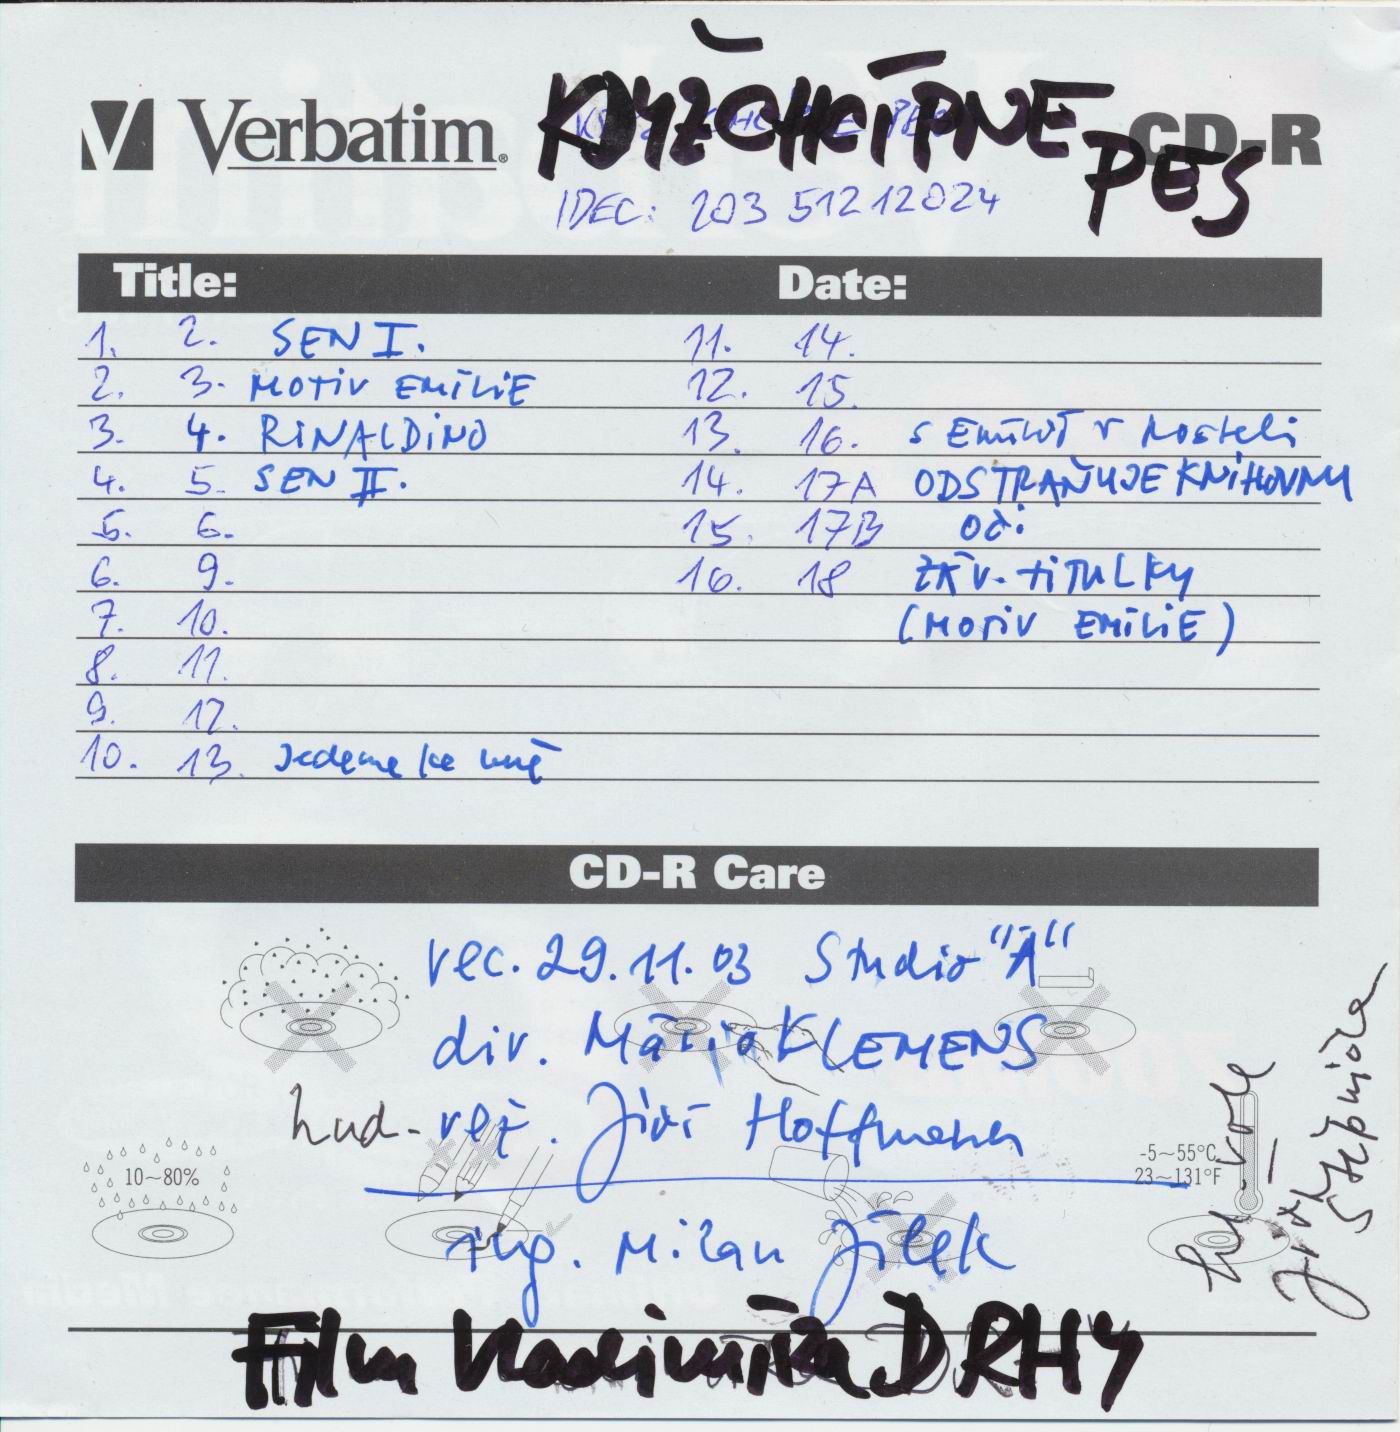 Verbatim
KDYŽ CHCÍPNE PES
CD-R
IDEC: 203 512 12024
Title: Date:
1. 2. SEN I. 11. 14.
2. 3. MOTIV EMÍLIE 12. 15.
3. 4. RINALDINO 13. 16. S EMÍLIÍ V POSTELI
4. 5. SEN II. 14. 17A ODSTRAŇUJE KNIHOVNU
5. 6. 15. 17B OČI
6. 9. 16. 18 ZÁV. TITULKY
7. 10. (MOTIV EMÍLIE)
8. 11.
9. 12.
10. 13. Jedeme ke mně
CD-R Care
rec. 29.11.03 Studio "A"
dir. Mário KLEMENS
hud. rež. Jiří Hoffmann
-5~55°C
23~131°F
10~80%
ing. Milan Jílek
Jiří Štěpnička
Film Vladimíra DRHY